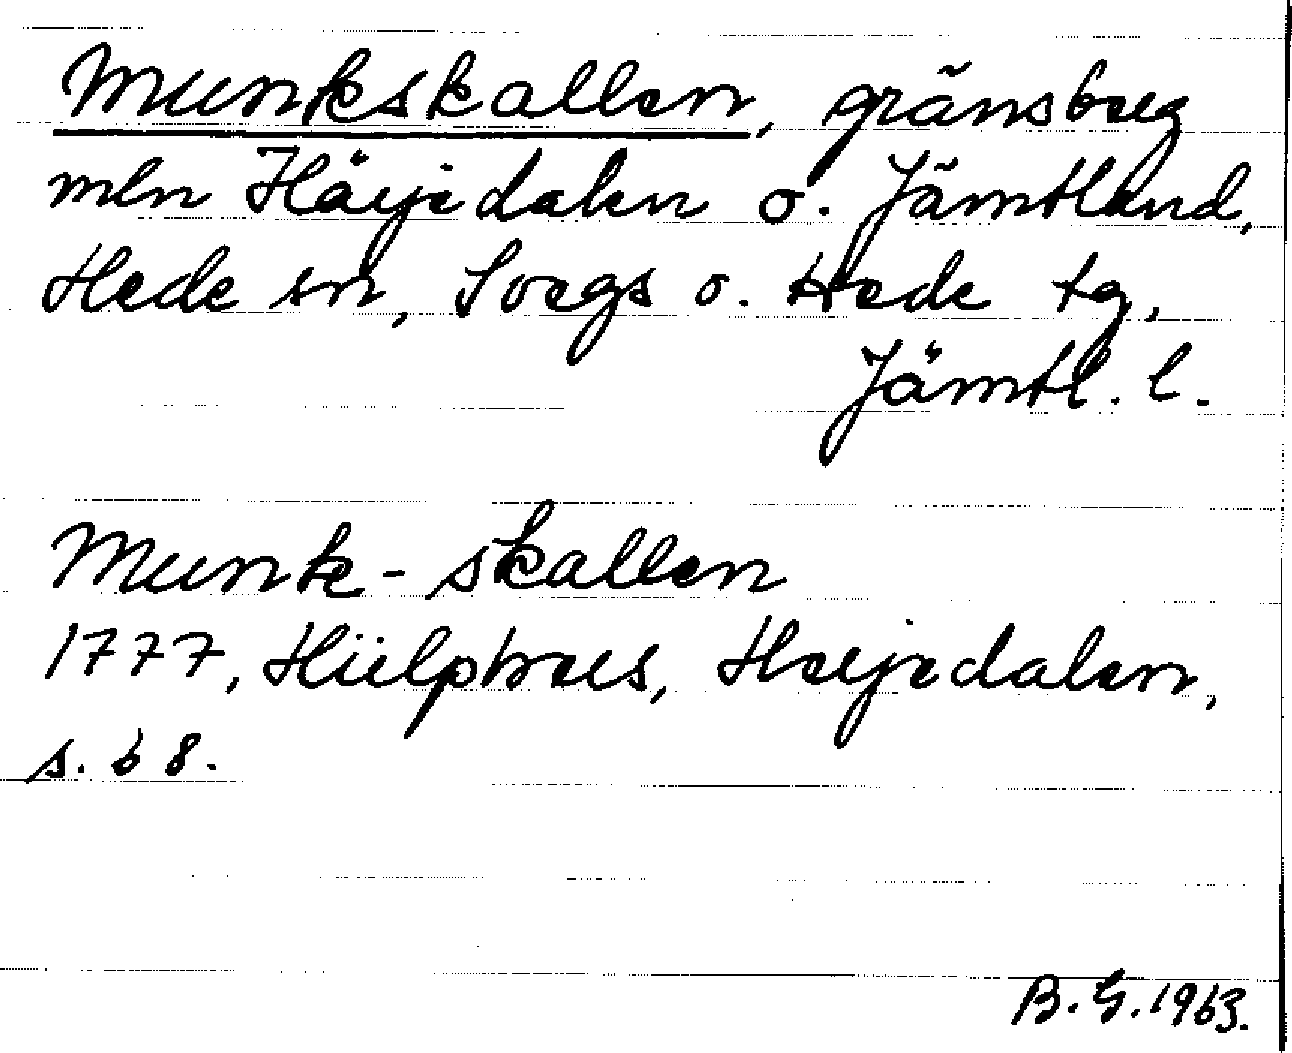 Munkskallen, gränsberg
mln Härjedalen o. Jämtland,
Hede sn, Svegs o. Hede tg,
Jämtl. l.
Munk-skallen
1777, Hülphers, Herjedalen,
s. 68.
B. G. 1963.